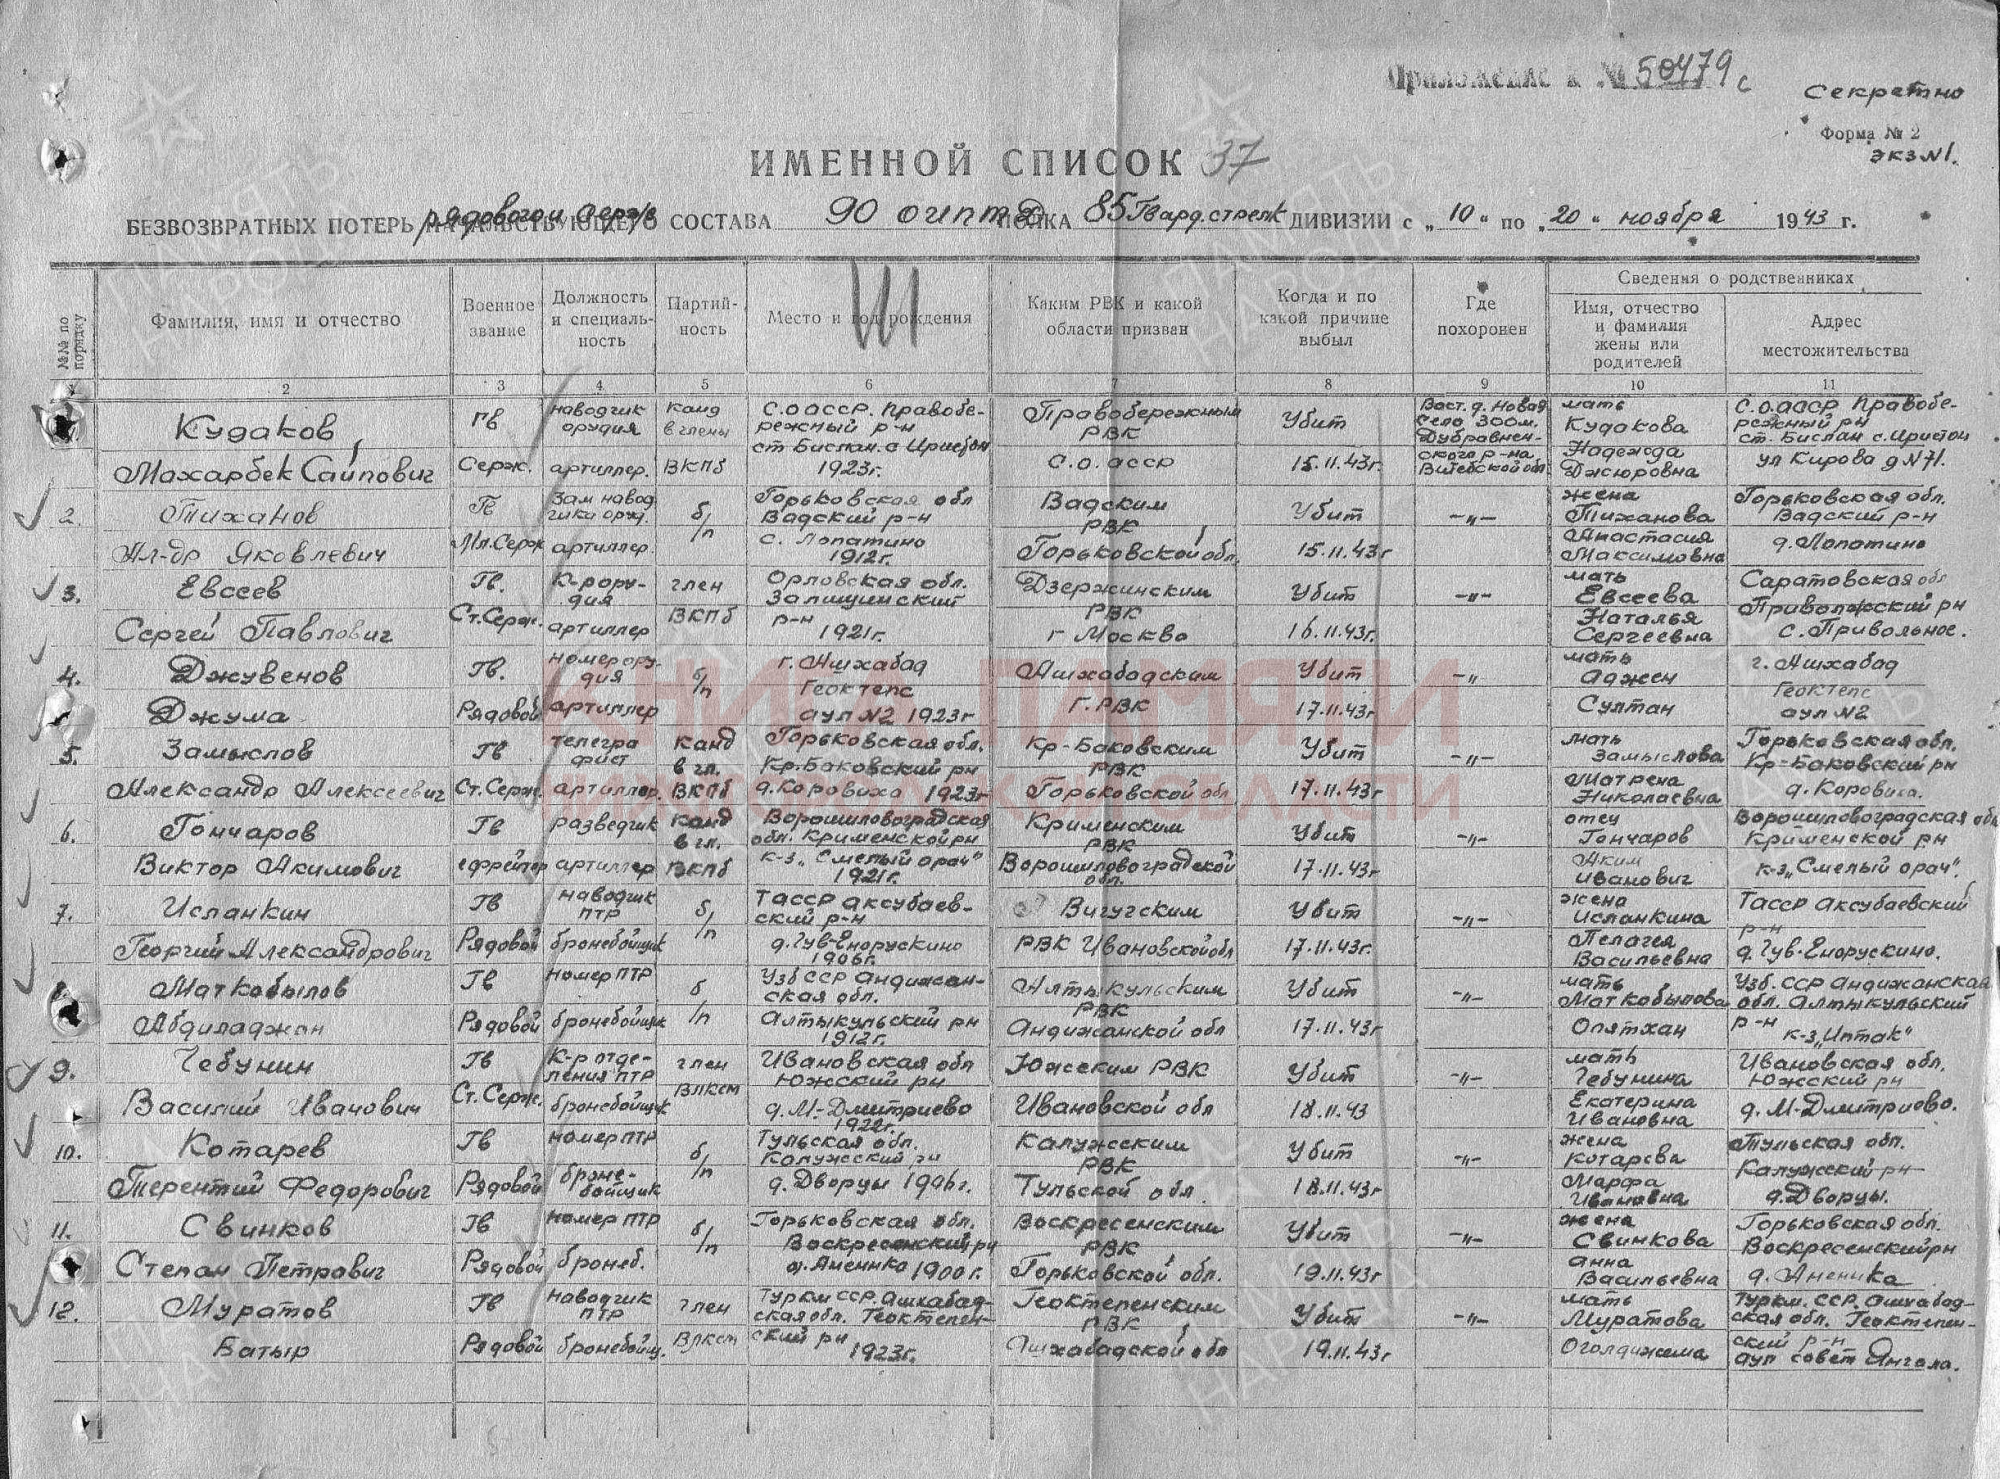 Приложение к № 50479с
Секретно
Форма № 2
экз N1.
ИМЕННОЙ СПИСОК 37
БЕЗВОЗВРАТНЫХ ПОТЕРЬ рядового и серж СОСТАВА 90 оиптд ПОЛКА 85 Гвард. стрелк ДИВИЗИИ с „10" по „20" ноября 1943 г.
№№ по порядку
Фамилия, имя и отчество
Военное звание
Должность и специаль-ность
Партий-ность
Место и год рождения
Каким РВК и какой области призван
Когда и по какой причине выбыл
Где похоронен
Сведения о родственниках
Имя, отчество и фамилия жены или родителей
Адрес местожительства
1 2 3 4 5 6 7 8 9 10 11
Кудаков Гв наводчик орудия канд в члены С.О АССР. Правобе-режный р-н Правобережным РВК Убит Вост. д. Новая Село 300м. Дубравнен-ского р-на Витебской обл. мать Кудакова С.О.АССР Правобе-режный рн
Махарбек Саипович Серж. артиллер. ВКПб ст Бислан. с 1923г. С.О. АССР 15.11.43г. Надежда Джюровна ст. Бислан с. Иристон ул Кирова д N71.
2. Тиханов Гв Зам навод чика оруд. б/п Горьковская обл Вадский р-н Вадским РВК Убит -„- жена Тиханова Горьковская обл. Вадский р-н
Ал-др Яковлевич Мл. Серж артиллер. с. Лопатино 1912г. Горьковской обл. 15.11.43г Анастасия Максимовна д. Лопатино
3. Евсеев Гв. К-р ору-дия член Орловская обл. Дзержинским РВК Убит -„- мать Евсеева Саратовская обл
Сергей Павлович Ст. Серж. артиллер ВКПб р-н 1921г. г Москва 16.11.43г. Наталья Сергеевна рн с. Привольное.
4. Джувенов Гв. номер ору-дия б/п г. Ашхабад Геоктепе Ашхабадским Убит -„ мать Аджен г. Ашхабад Геоктепе
Джума Рядовой артиллер аул N2 1923г Г. РВК 17.11.43г Султан аул N2
5. Замыслов Гв телегра фист канд в чл. Горьковская обл. Кр.Баковский рн Кр-Баковским РВК Убит -„- мать Замыслова Горьковская обл. Кр-Баковский рн
Александр Алексеевич Ст. Серж. артиллер. ВКПб д. Коровиха 1923г Горьковской обл 17.11.43г Матрена Николаевна д. Коровиха.
6. Гончаров Гв разведчик канд в чл. Ворошиловоградская обл. Крименской рн Крименским РВК Убит -„- отец Гончаров Ворошиловоградская обл Крименской рн
Виктор Акимович ефрейтер артиллер ВКПб к-з „Смелый орач" 1921г. Ворошиловоградской обл. 17.11.43г Аким Иванович к-з „Смелый орач".
7. Исланкин Гв наводчик ПТР б/п ТАССР Аксубаев-ский р-н Вичугским Убит -„- жена Исланкина ТАССР Аксубаевский р-н
Георгий Александрович Рядовой бронебойщик д. Чув-Енорускино 1906г. РВК Ивановской обл 17.11.43г. Пелагея Васильевна д. Чув-Енорускино.
Маткобылов Гв номер ПТР б/п Узб ССР Андижан-ская обл. Алтыкульским РВК Убит -„- мать Маткобылова Узб. ССР Андижанская обл. Алтыкульский р-н
Абдиладжан Рядовой бронебойщик Алтыкульский рн 1912г. Андижанской обл 17.11.43г Олятхан к-з „Иптак"
9. Чебунин Гв К-р отде-ления ПТР член Ивановская обл Южский рн Южским РВК Убит -„- мать Чебунина Ивановская обл. Южский рн
Василий Иванович Ст. Серж. бронебойщик ВЛКСМ д. М.-Дмитриево 1922г. Ивановской обл 18.11.43 Екатерина Ивановна д. М-Дмитриово.
10. Котарев Гв номер ПТР б/п Тульская обл. Калужский рн Калужским РВК Убит -„- жена Котарева Тульская обл. Калужский рн
Терентий Федорович Рядовой броне-бойщик д. Дворцы 1906г. Тульской обл. 18.11.43г Марфа Ивановна д. Дворцы.
11. Свинков Гв номер ПТР б/п Горьковская обл. Воскресенский рн Воскресенским РВК Убит -„- жена Свинкова Горьковская обл. Воскресенский рн
Степан Петрович Рядовой бронеб. д. Аненика 1900г. Горьковской обл. 19.11.43г Анна Васильевна д. Аненика
12. Муратов Гв наводчик ПТР член Туркм ССР. Ашхабад-ская обл. Геоктепен-ский рн Геоктепенским РВК Убит -„- мать Муратова Туркм. ССР. Ашхабад-ская обл. Геоктепен-ский р-н
Батыр Рядовой бронебойщ. ВЛКСМ 1923г. Ашхабадской обл 19.11.43г Оголдижема аул совет Янгала.
КНИГА ПАМЯТИ
НИЖЕГОРОДСКОЙ ОБЛАСТИ
ПАМЯТЬ НАРОДА